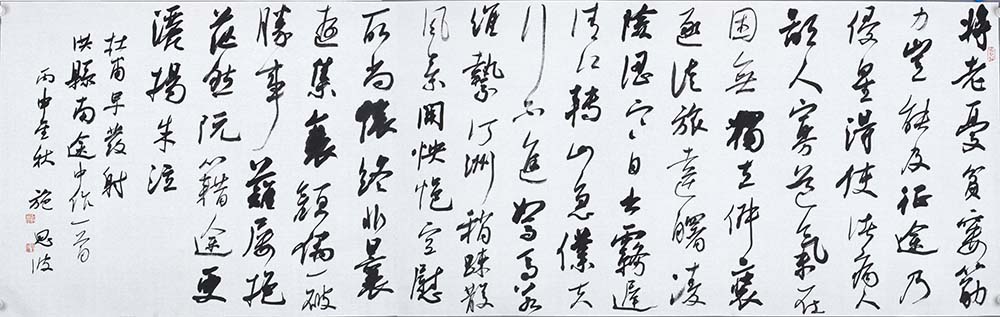 將老憂貧窶筋
力豈能及征途乃
侵星得使諸病入
鄙人寡道氣在
困無獨立俶裝
逐徒旅達曙凌
險澀寒日出霧遲
清江轉山急僕夫
行不進駑馬若
維縶汀洲稍踈散
風景開怏悒空慰
所尚懷終非曩
遊集衰顏偶一破
勝事難屢挹
茫然阮籍途更
灑揚朱泣
杜甫早發射
洪縣南途中作一首
丙申金秋 施